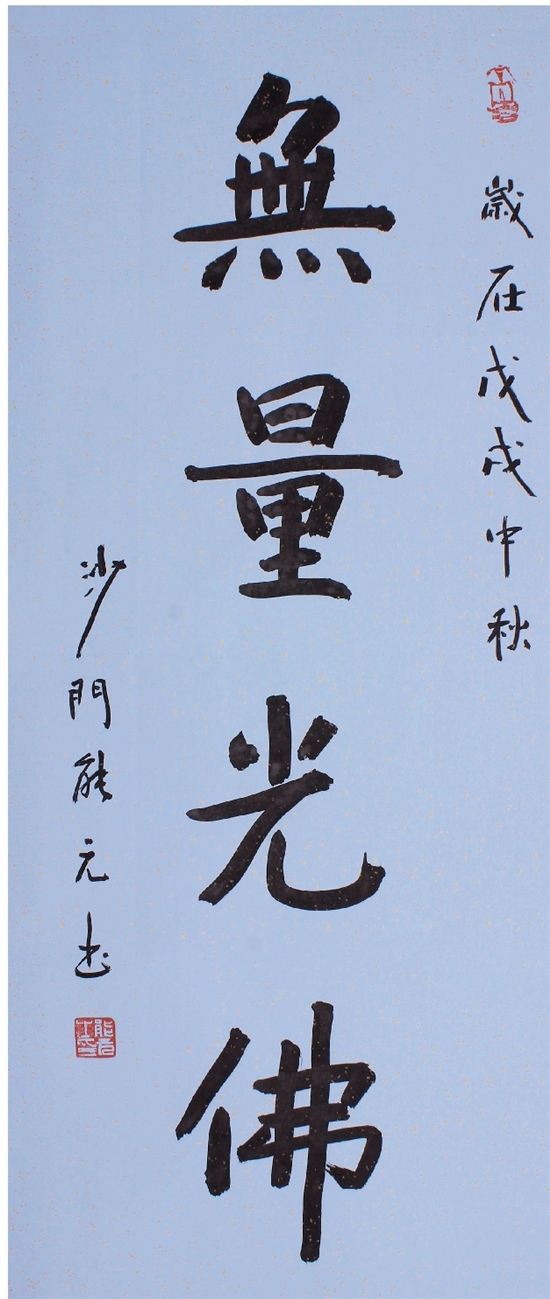 歲在戊戌中秋
無量光佛
沙門能元书